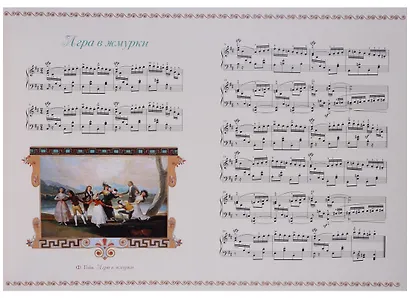 Игра в жмурки
Ф. Гойя. Игра в жмурки